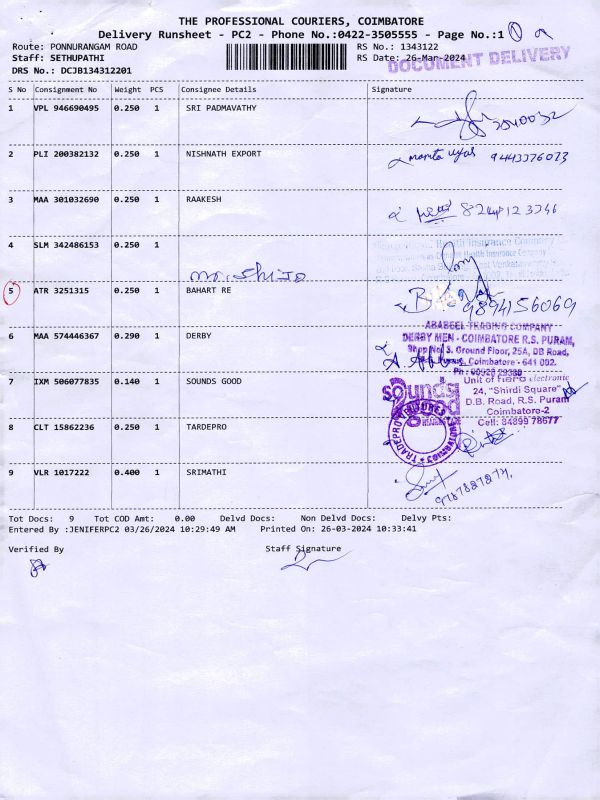 THE PROFESSIONAL COURIERS, COIMBATORE
Delivery Runsheet - PC2 - Phone No.:0422-3505555 - Page No.:1
Route: PONNURANGAM ROAD RS No.: 1343122
Staff: SETHUPATHI RS Date: 26-Mar-2024
DOCUMENT DELIVERY
DRS No.: DCJB134312201
S No Consignment No Weight PCS Consignee Details Signature
1 VPL 946690495 0.250 1 SRI PADMAVATHY
2 PLI 200382132 0.250 1 NISHNATH EXPORT
mamta vyas 9443376073
3 MAA 301032690 0.250 1 RAAKESH
4 SLM 342486153 0.250 1
Health Insurance Company
5 ATR 3251315 0.250 1 BAHART RE
9894156069
ABABEEL TRADING COMPANY
6 MAA 574446367 0.290 1 DERBY
DERBY MEN - COIMBATORE R.S. PURAM,
Shop No. 3, Ground Floor, 25A, DB Road,
Coimbatore - 641 002.
7 IXM 506077835 0.140 1 SOUNDS GOOD
sounds good
Unit of electronic
24, "Shirdi Square"
D.B. Road, R.S. Puram
Coimbatore-2
Cell: 84899 78677
8 CLT 15862236 0.250 1 TARDEPRO
9 VLR 1017222 0.400 1 SRIMATHI
Tot Docs: 9 Tot COD Amt: 0.00 Delvd Docs: Non Delvd Docs: Delvy Pts:
Entered By :JENIFERPC2 03/26/2024 10:29:49 AM Printed On: 26-03-2024 10:33:41
Verified By Staff Signature